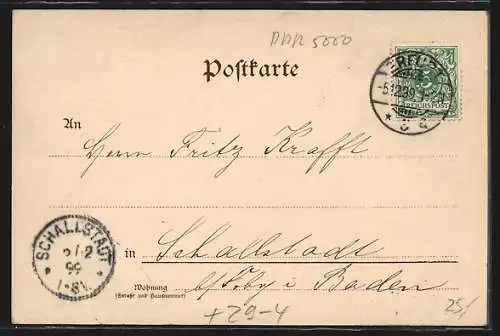 DDR 5000
Postkarte
ERFURT
5.12.99
REICHSPOST
An
Herrn Fritz Krafft
SCHALLSTADT
99
in Schallstadt
Wohnung
(Straße und Hausnummer)
b/Frbg i Baden
+29-4
25/